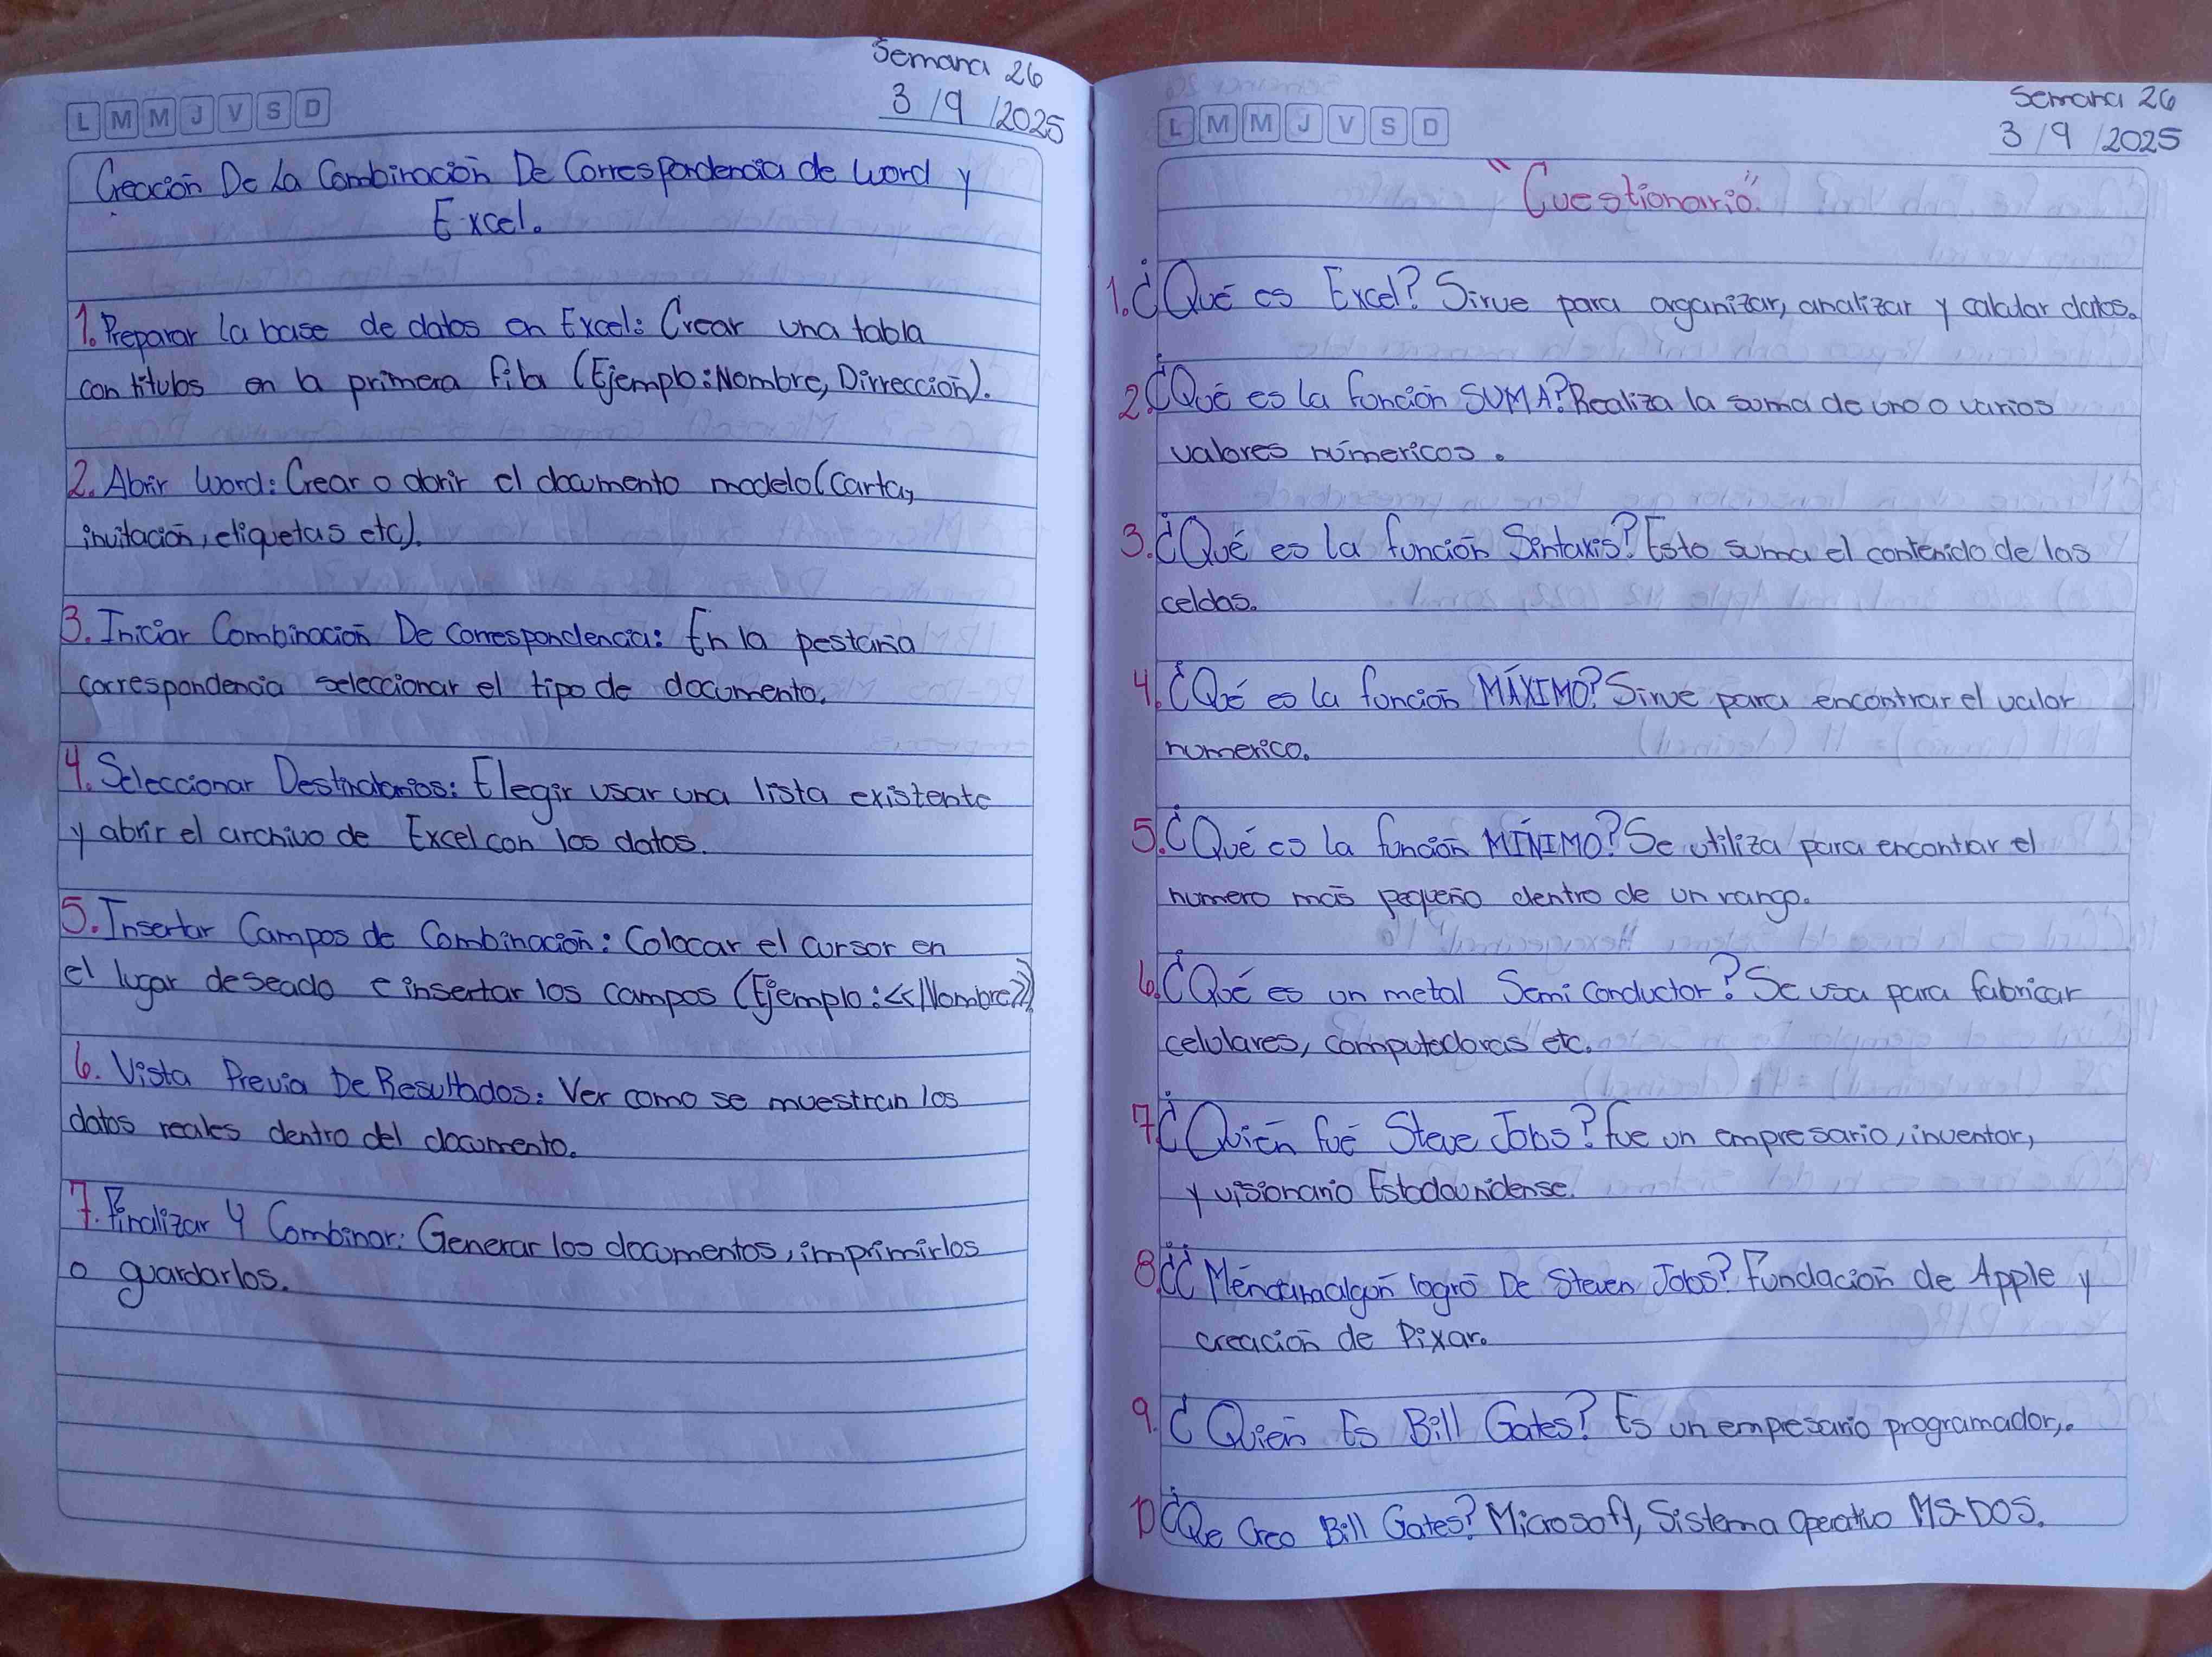 Semana 26
L M M J V S D
3/9/2025
Creación De La Combinación De Correspondencia de Word y
Excel.
1. Preparar la base de datos en Excel: Crear una tabla
con titulos en la primera fila (Ejemplo: Nombre, Dirreccion).
2. Abrir Word: Crear o abrir el documento modelo (Carta,
invitación, etiquetas etc).
3. Iniciar Combinacion De Correspondencia: En la pestaña
correspondencia seleccionar el tipo de documento.
4. Seleccionar Destinatarios: Elegir usar una lista existente
y abrir el archivo de Excel con los datos.
5. Insertar Campos de Combinación: Colocar el cursor en
el lugar deseado e insertar los campos (Ejemplo: <<Nombre>>)
6. Vista Previa De Resultados: Ver como se muestran los
datos reales dentro del documento.
7. Finalizar Y Combinar: Generar los documentos, imprimirlos
o guardarlos.
Semana 26
L M M J V S D
3/9/2025
"Cuestionario"
1. ¿Qué es Excel? Sirve para organizar, analizar y calcular datos.
2. ¿Qué es la función SUMA? Realiza la suma de uno o varios
valores númericos.
3. ¿Qué es la función Sintaxis? Esto suma el contenido de las
celdas.
4. ¿Qué es la función MÁXIMO? Sirve para encontrar el valor
numerico.
5. ¿Qué es la función MÍNIMO? Se utiliza para encontrar el
numero más pequeño dentro de un rango.
6. ¿Qué es un metal Semi conductor? Se usa para fabricar
celulares, computadoras etc.
7. ¿Quién fué Steve Jobs? fue un empresario, inventor,
y visionario Estadounidense.
8. ¿¿ logró De Steven Jobs? Fundación de Apple y
creación de Pixar.
9. ¿Quién Es Bill Gates? Es un empresario programador,.
10 ¿Que Creo Bill Gates? Microsoft, Sistema Operativo MS-DOS.